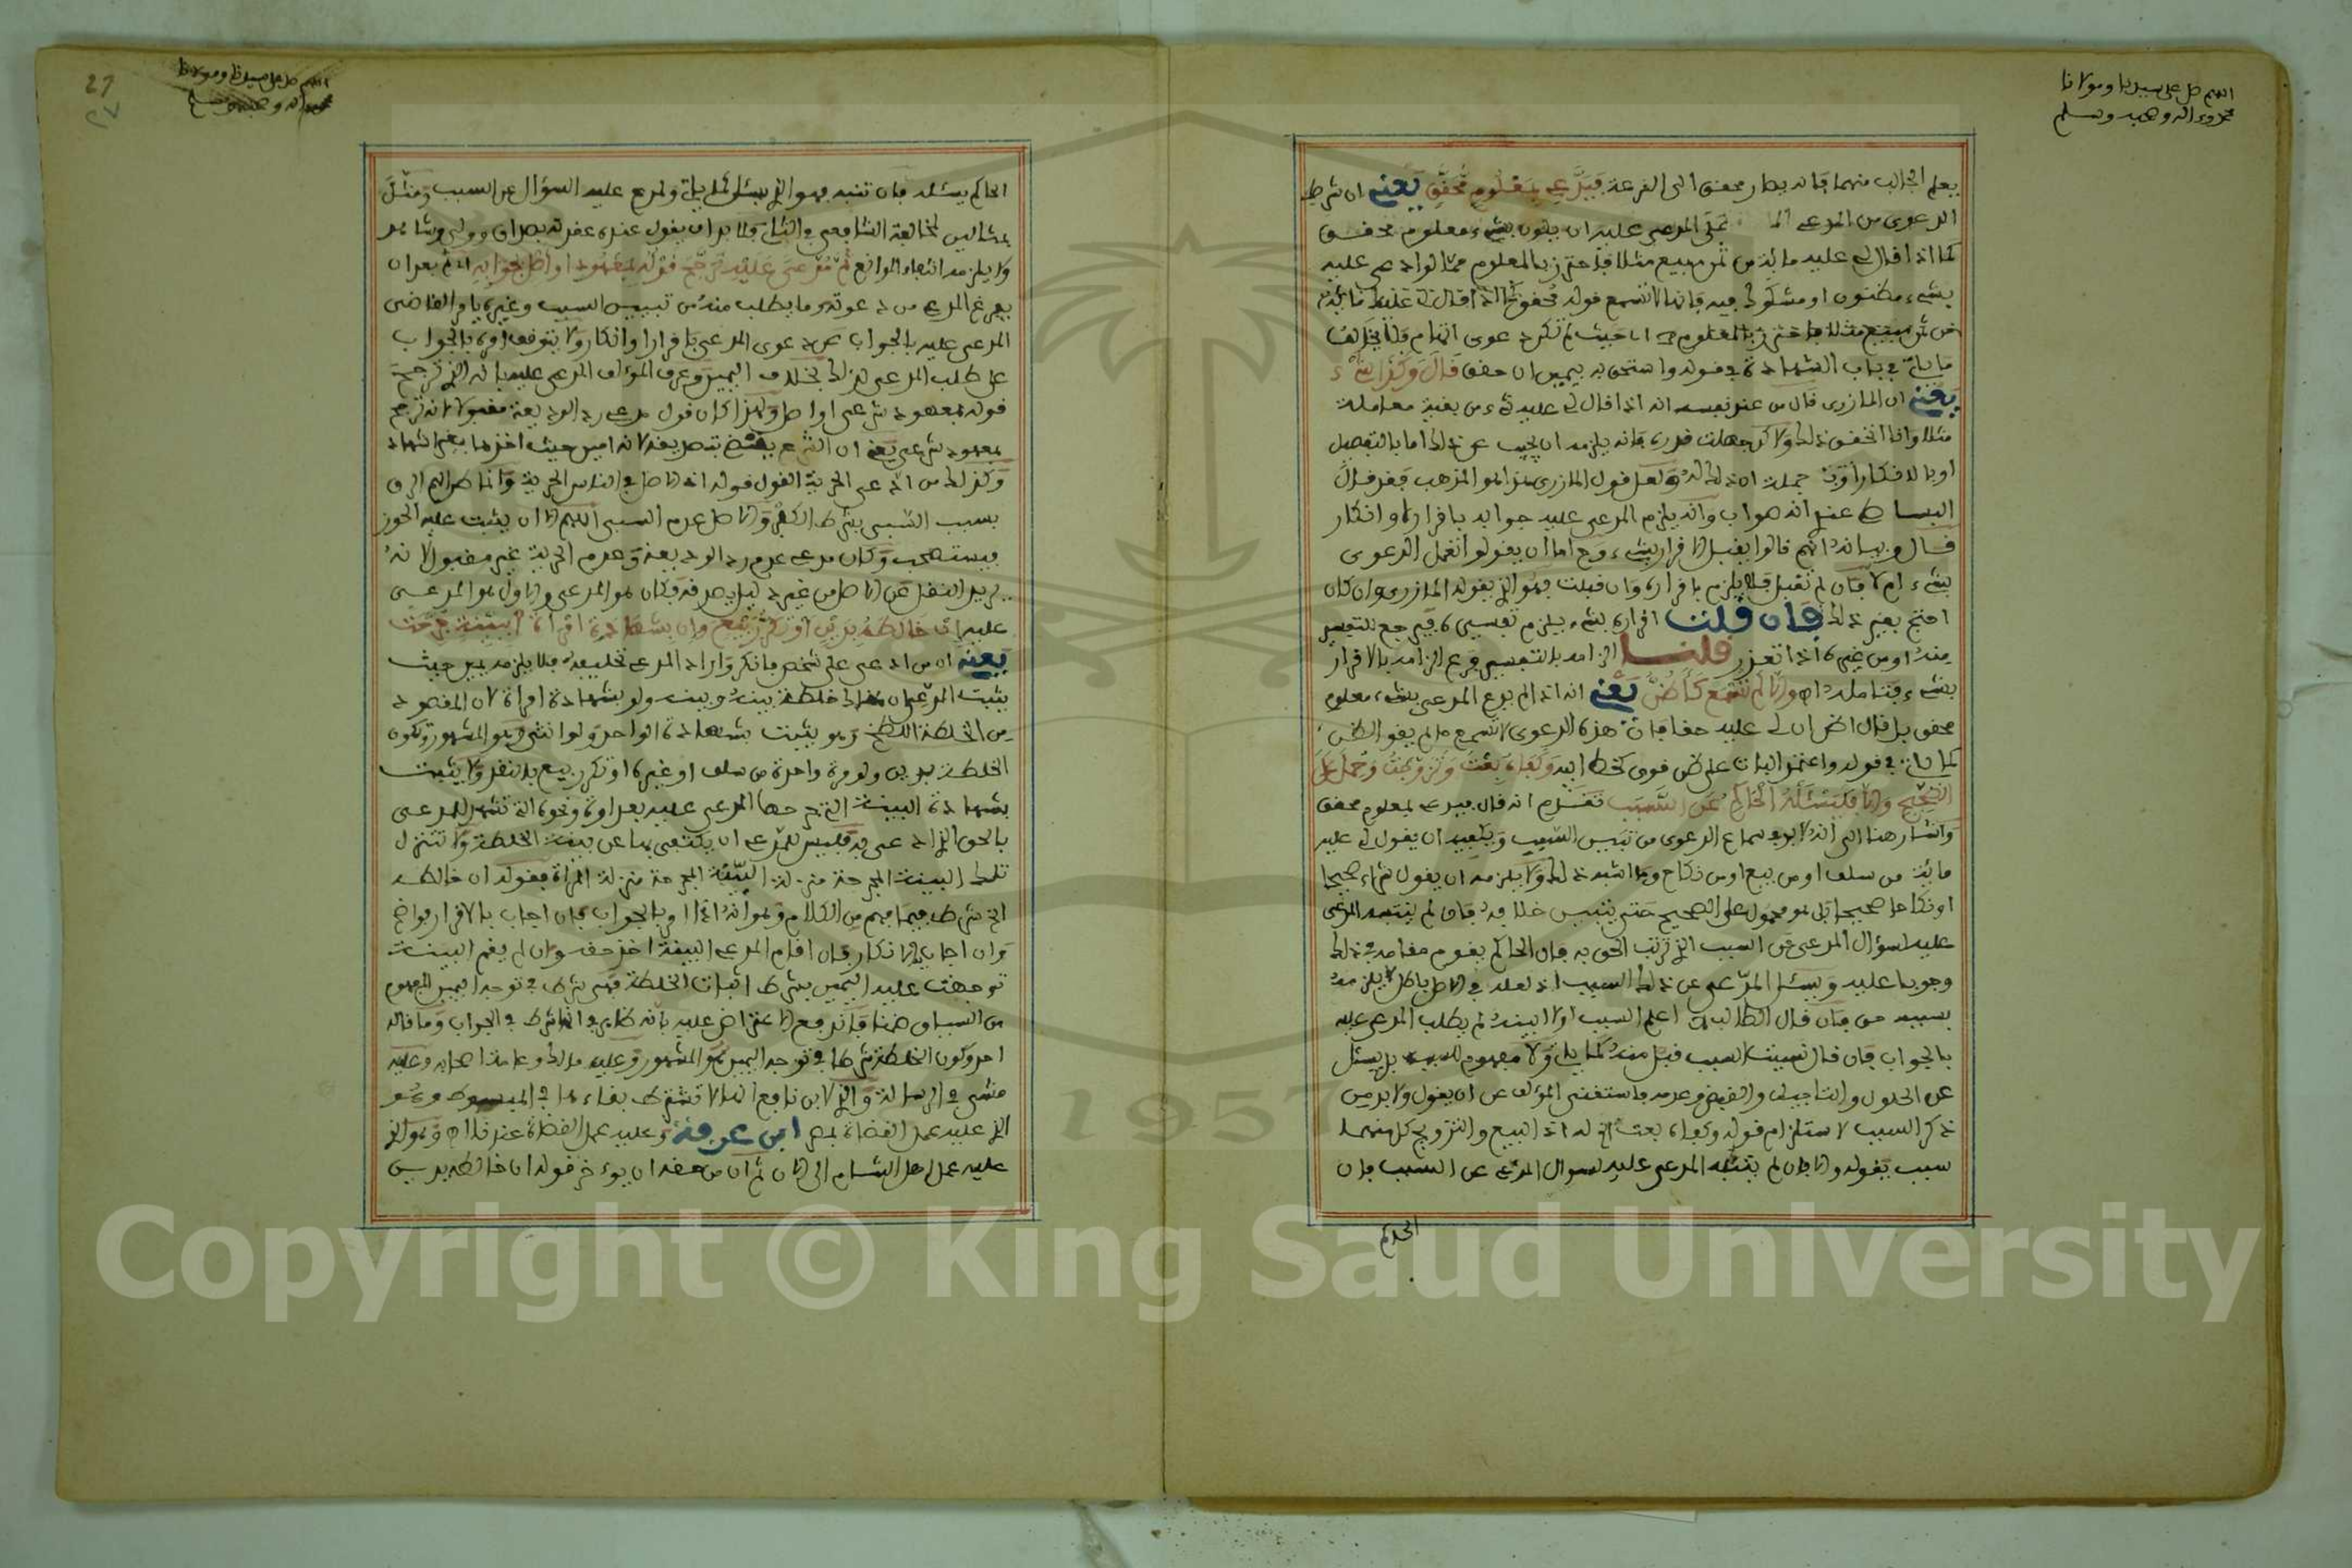 اللهم صل على سيدنا ومولانا
محمد وءاله وصحبه وسلم
يعلم الجالب منهما فانه يصار محقق الى القرعة فيدعي بمعلوم محقق يعني ان شرط
الدعوى من المدعي على المدعى عليه ان يكون بشيء معلوم محقق
كما اذا قال لي عليه مائة من ثمن مبيع مثلا فاحترز بالمعلوم مما لو ادعى عليه
بشيء مظنون او مشكوك فيه فانها لا تسمع قوله محقق كما اذا قال لي عليك مائة
من ثمن مبيع مثلا فاحترز بالمعلوم اي حيث لم تكن دعوى اتهام فلا يخالف
ما ياتي في باب الشهادة في قوله واستحق به بيمين ان حقق قال وكذا شيء
يعني ان المازري قال من عند نفسه انه اذا قال لي عليه شيء من بقية معاملة
مثلا وانا اتحقق ذلك ولاكن جهلت قدره فانه يلزمه ان يجيب عن ذلك اما بالتفصيل
او بالانكار جملة ان ذلك له ولعل قول المازري هذا هو المذهب فقد قال
البساطي عندي انه صواب وانه يلزم المدعى عليه جوابه باقراره او انكار
قال وبيانه انهم قالوا يقبل الاقرار بشيء وح اما ان يقولوا تقبل الدعوى
بشيء ام لا فان لم تقبل فلا يلزم باقراره وان قبلت فهو الذي يقوله المازري وان كان
احتج بغير ذلك فان قلت اقراره بشيء يلزم تفسيره فيرجع للتفسير
منه او من غيره اذا تعذر قلنا الزامه بالتفسير فرع الزامه بالاقرار
بشيء فتامله اه والا لم تسمع كاظن يعني انه اذا لم يدع المدعي بشيء معلوم
محقق بل قال اظن ان لي عليه حقا فان هذه الدعوى لا تسمع ما لم يقو الظن
كما ياتي في قوله واعتمد البات على ظن قوي كخط ابيه وكفاه بعت وتزوجت وحمل على
الصحيح والا فليسئله الحاكم عن السبب تقدم انه قال فيدعي بمعلوم محقق
واشار هنا الى انه لا بد في سماع الدعوى من تبيين السبب ويكفيه ان يقول لي عليه
مائة من سلف او من بيع او من نكاح وما اشبه ذلك ولا يلزمه ان يقول شراء صحيحا
او نكاحا صحيحا بل هو محمول على الصحيح حتى يتبين خلافه فان لم ينتبه المدعى
عليه لسؤال المدعي عن السبب الذي ترتب الحق به فان الحاكم يقوم مقامه في ذلك
وجوبا عليه ويسئل المدعي عن ذلك السبب اذ لعله في الاصل باطل لا يلزم منه
بسببه حق فان قال الطالب لا اعلم السبب او لا ابينه لم يطلب المدعى عليه
بالجواب فان قال نسيت السبب قبل منه كما ياتي ولا مفهوم للسبب بل يسئل
عن الحلول والتاجيل والقبض وعدمه واستغنى المؤلف عن ان يقول ولا بد من
ذكر السبب لاستلزام قوله وكفاه بعت الخ له اذ البيع والتزويج كل منهما
سبب بقوله والا فان لم ينتبه المدعى عليه لسوال المدعي عن السبب فان
الحاكم
27
٢٧
اللهم صل على سيدنا ومولانا
محمد واله وصحبه وسلم
الحاكم يسئله فان تنبه فهو الذي يسئل كما ياتي ولم دع عليه السؤال عن السبب ومثل
بمثالين لمخالفة الشافعي في الثاني فلا بد ان يقول عنده عقد نكاح بصداق وولي وشاهد
ولا يلزمه انتفاء الموانع ثم مدعى عليه ترجح قوله بمعهود او اصل بجوابه اي ثم بعد ان
يفرغ المدعي من دعوته وما يطلب منه من تبيين السبب وغيره يامر القاضي
المدعى عليه بالجواب عن دعوى المدعي باقرار او انكار ولا يتوقف امره بالجواب
على طلب المدعي لذلك بخلاف اليمين وعرف المؤلف المدعى عليه بانه الذي ترجح
قوله بمعهود شرعي او اصل ولهذا كان قول مدعي رد الوديعة مقبولا لانه ترجح
بمعهود شرعي يعني ان الشرع يقتضي تصديقه لانه امين حيث اخذها بغير اشهاد
وكذلك من ادعى الحرية القول قوله اذ الاصل في الناس الحرية وانما طرا لهم الرق
بسبب السبي بشرط الكفر والاصل عدم السبي اللهم الا ان يثبت عليه الحوز
فيستصحب وكان مدعي عدم رد الوديعة وعدم الحرية غير مقبول لانه
يريد النقل عن الاصل من غير دليل يصدقه فكان هو المدعي والاول هو المدعى
عليه ان خالطه بدين او تكرر بيع وان بشهادة امراة لا ببينة جرحت
يعني ان من ادعى على شخص فانكر واراد المدعي تحليفه فلا يلزمه يمين حيث
يثبت المدعي ان هناك خلطة بينه وبينه ولو بشهادة امراة لان المقصود
من الخلطة اللطخ وهو يثبت بشهادة الواحد ولو انثى وهو المشهور وتكون
الخلطة بدين ولو مرة واحدة من سلف او غيره او تكرر بيع بالنقد ولا يثبت
بشهادة البينة التي جرحها المدعى عليه بعداوة ونحوه التي تشهد للمدعي
بالحق الذي ادعى به فليس للمدعي ان يكتفي بها عن بينة الخلطة ولا تتنزل
تلك البينة المجرحة منزلة البينة المجرحة منزلة المراة فقوله ان خالطه
الخ شرط فيما فهم من الكلام وهو انه اذا امر بالجواب فان اجاب بالاقرار فواضح
وان اجاب بالانكار فان اقام المدعي البينة اخذ حقه وان لم يقم البينة
توجهت عليه اليمين بشرط اثبات الخلطة فهي شرط في توجه اليمين المفهوم
من السياق ضمنا فاندفع الاعتراض عليه بانه ظاهر في انها شرط في الجواب وما قاله
احد وكون الخلطة شرطا في توجه اليمين هو المشهور وعليه مالك وعامة اصحابه وعليه
مشى في الرسالة والذي لابن نافع انها لا تشترط بقاءها في المبسوط وهو
الذي عليه عمل القضاة بمصر ابن عرفة وعليه عمل القضاة عندنا اه وهو الذي
عليه عمل اهل الشام الى الان ثم ان من حقه ان يوءخر قوله ان خالطه بدين